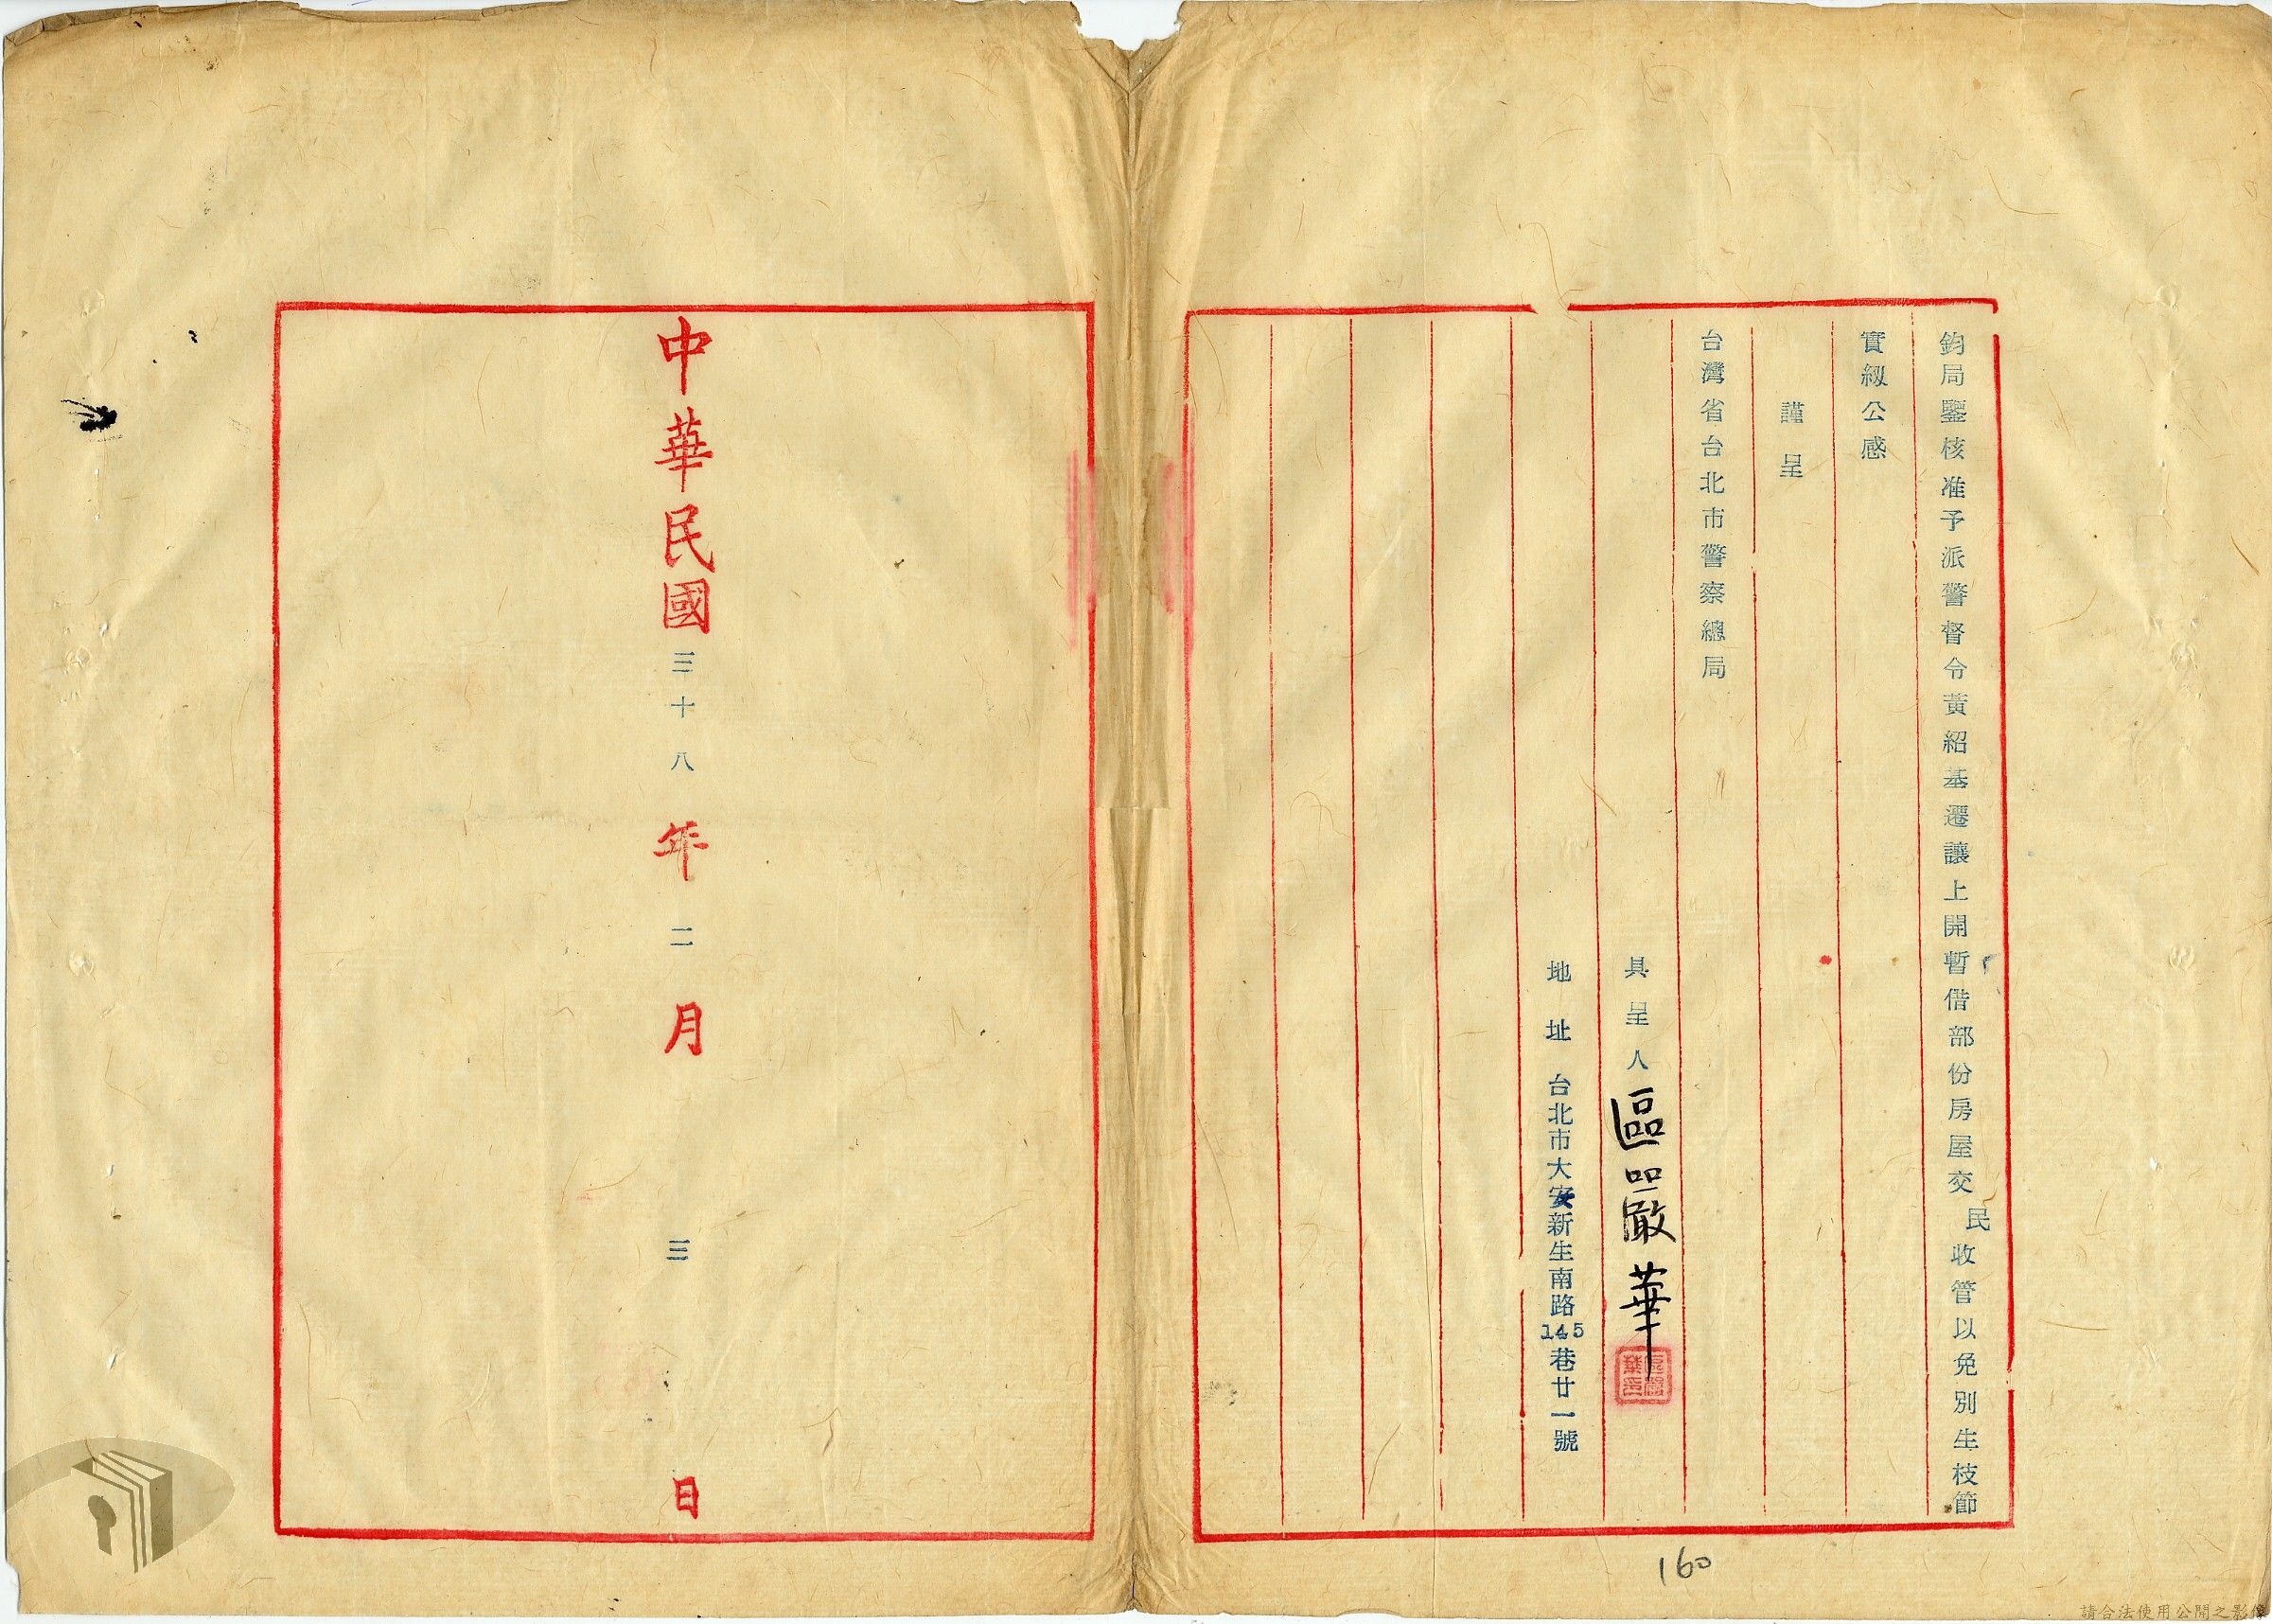 鈞局鑒核准予派警督令黃紹基遷讓上開暫借部份房屋交民收管以免別生枝節
實紉公感
謹呈
台灣省台北市警察總局
具呈人 區嚴華
地址 台北市大安新生南路145巷廿一號
中華民國三十八年二月三日
160
請合法使用公開之影像